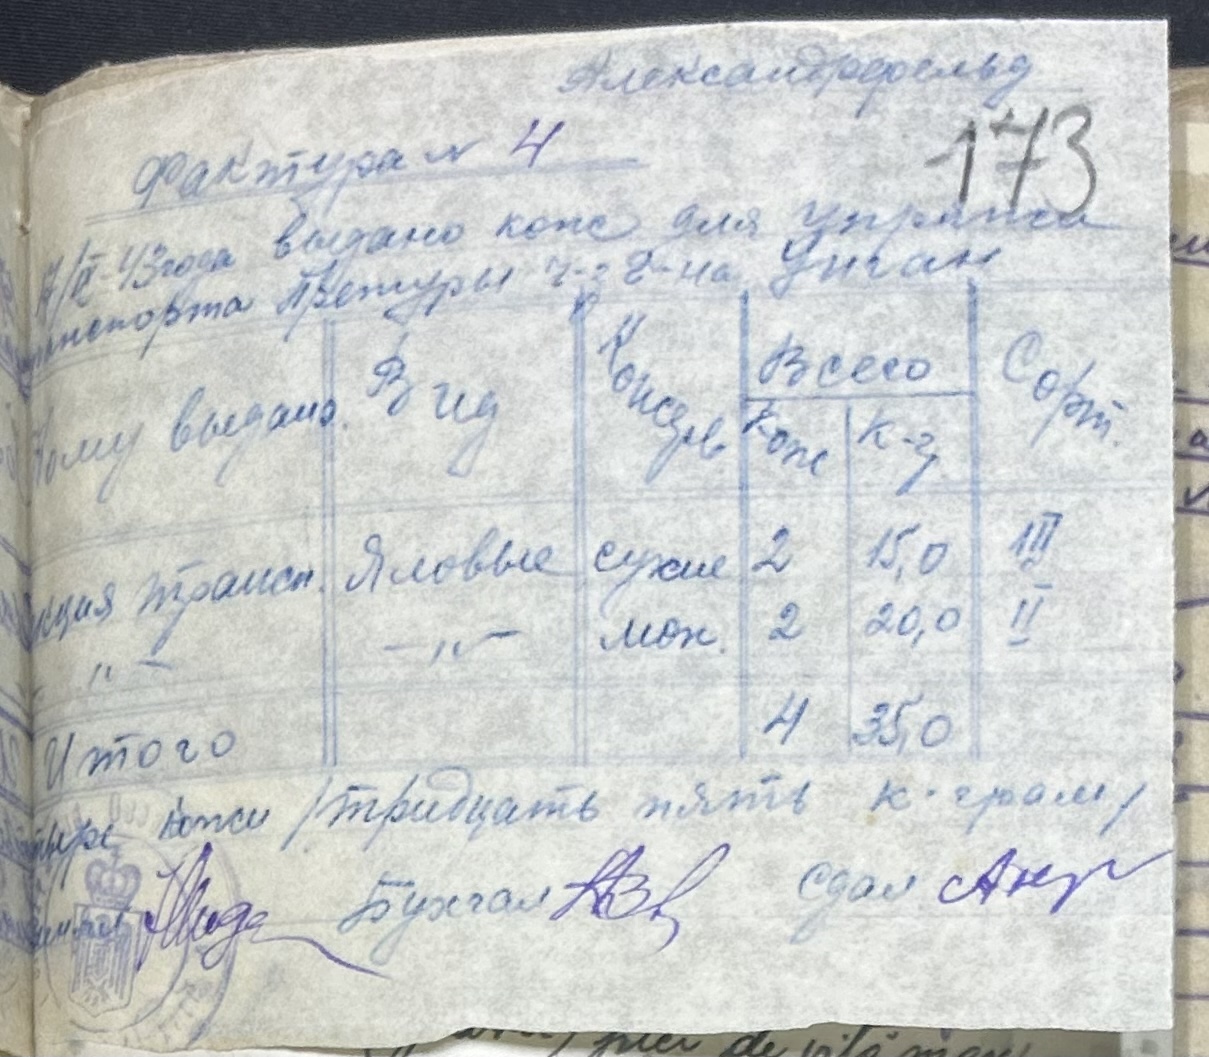 Александрфельд
173
Фактура № 4
17/IX-43 года выдано кож для упряжи
транспорта Претуры
Кому выдано. Вид Консерв Всего Сорт.
Кож к-г.
кция трансп. Яловые сухие 2 15,0 III
-„- -„- мок. 2 20,0 II
Итого 4 35,0
четыре кожи /тридцать пять к-грам/
Бухгал сдал